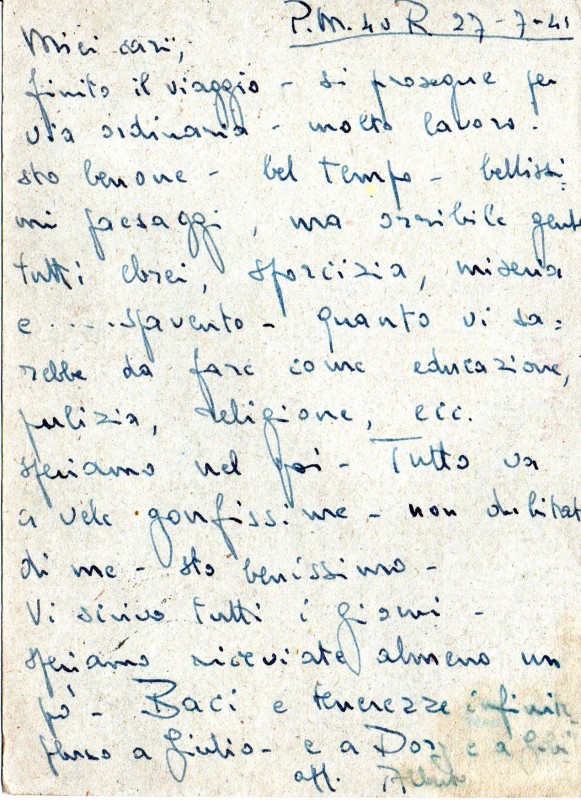 P.M. 40 R 27-7-41
Miei cari,
finito il viaggio - si prosegue per
via ordinaria - molto lavoro.
sto benone - bel tempo - bellissi
mi paesaggi, ma orribile gente
tutti ebrei, sporcizia, miseria
e ..... spavento - quanto vi sa=
rebbe da fare come educazione,
pulizia, religione, ecc.
speriamo nel poi - Tutto va
a vele gonfissime - non dubitate
di me - sto benissimo -
Vi scrivo tutti i giorni -
speriamo riceviate almeno un
pò - Baci e tenerezze infinite
a Giulio - e a e a
aff.